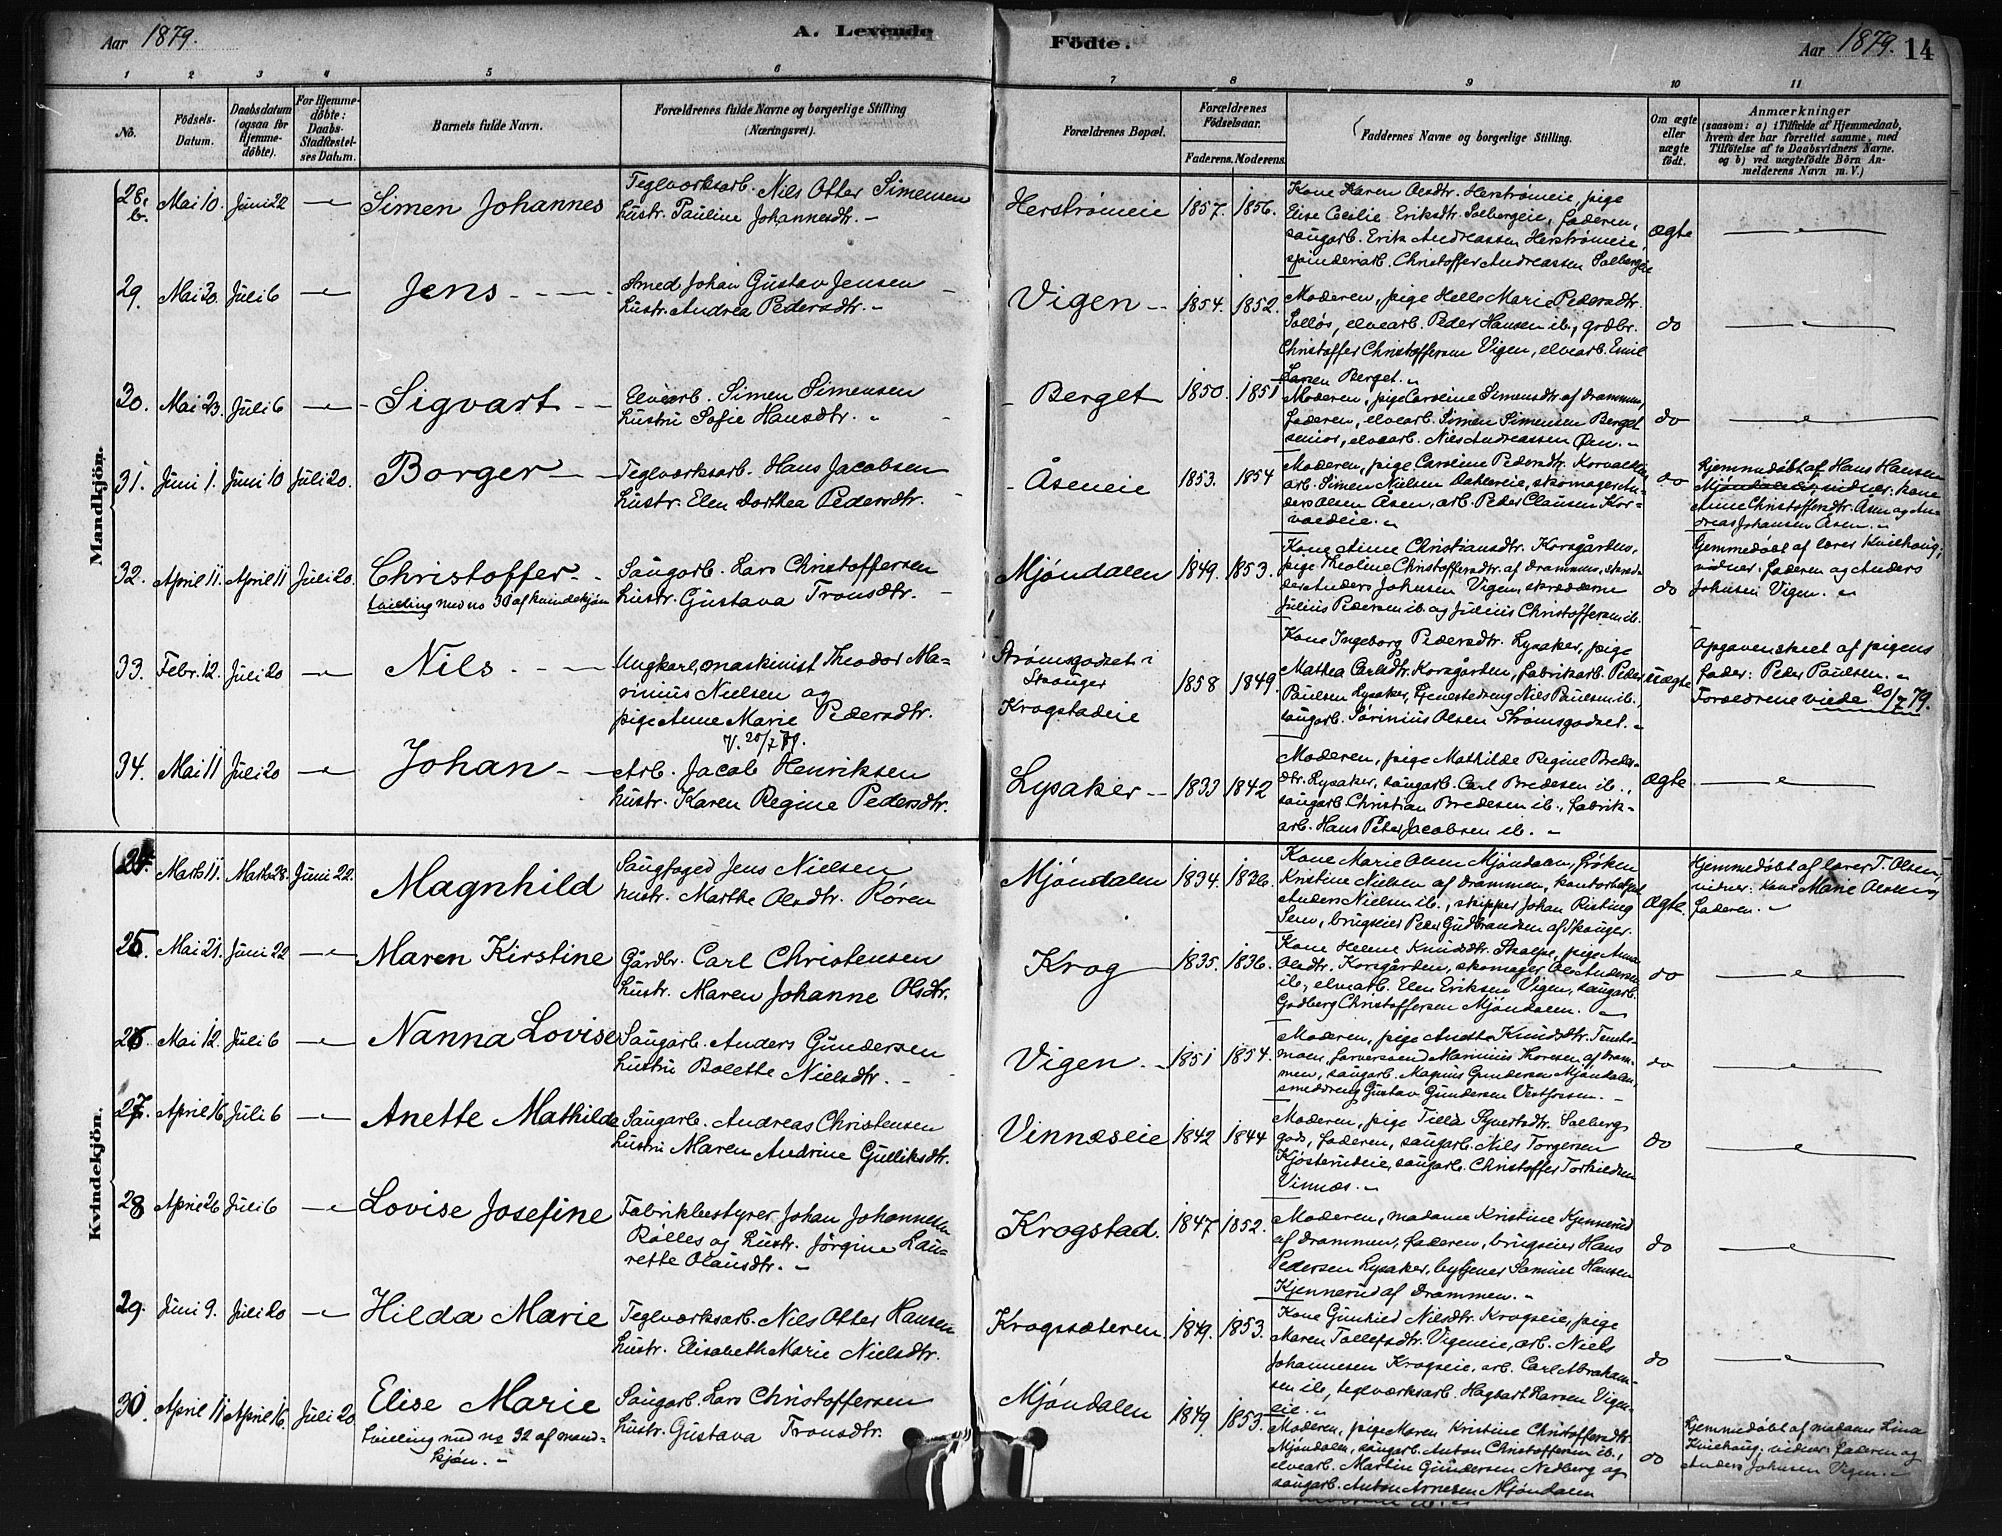 Aar 1879.
A. Levende
Födte.
Aar 1879. 14
1 2 3 4 5 6 7 8 9 10 11
No.
Födsels-Datum.
Daabsdatum (ogsaa för Hjemme-döbte).
For Hjemme-döbte: Daabs-Stadfæstel-ses Datum.
Barnets fulde Navn.
Forældrenes fulde Navne og borgerlige Stilling (Næringsvei).
Forældrenes Bopæl.
Forældrenes Födselsaar.
Faderens. Moderens.
Faddernes Navne og borgerlige Stilling.
Om ægte eller uægte födt.
Anmærkninger
(saasom: a) i Tilfælde af Hjemmedaab,
hvem der har forrettet samme, med
Tilföielse af to Daabsvidners Navne.
og b) ved uægtefödte Börn An-
melderens Navn m. V.)
Mandkjön.
28. b. Mai 10. Juni 22 Simen Johannes
Teglværksarb. Nils Otter Simensen
hustr. Pauline Johannesdtr.
Herstrømeie 1857. 1856.
Kone Karen Olsdtr. Herstrømeie, pige
Elise Cecilie Eriksdtr. Solbergeie, faderen,
saugarb. Erik Andreassen Herstrømeie,
spinderiarb. Christoffer Andreassen Solbergeie
ægte
29. Mai 20. Juli 6 Jens
Smed Johan Gustav Jensen
hustr. Andrea Pedersdtr.
Vigen 1854. 1852.
Moderen, pige Helle Marie Pedersdtr.
Solløs, elvearb. Peder Hansen ib., gdbr.
Christoffer Christoffersen Vigen, elvearb. Emil
Larsen Berget.
do
30. Mai 23. Juli 6 Sigvart
Elvearb. Simen Simensen
hustru Sofie Hansdtr.
Berget 1850. 1851
Moderen, pige Caroline Simensdtr. af Drammen,
faderen, elvearb. Simen Simensen Berget
senior, elvearb. Nils Andreassen Øen.
do
31. Juni 1. Juni 10 Juli 20. Borger
Teglværksarb. Hans Jacobsen
hustr. Elen Dorthea Pedersdtr.
Åseneie 1853. 1854
Moderen, pige Caroline Pedersdtr. Korvald
arb. Simen Nielsen Daleneie, skomager An-
ders Olsen Åsen, arb. Peder Clausen Kor-
valdeie.
do
Hjemmedøbt af Hans Hansen
Mjøndalen, vidner: kone
Anne Christoffersdtr. Åsen og An-
dreas Johansen Åsen.
32. April 11. April 11 Juli 20. Christoffer
tvilling med no 30 af kvindekjøn
Saugarb. Lars Christoffersen
hustr. Gustava Tronsdtr.
Mjøndalen 1849. 1853.
Kone Anne Christiansdtr. Korsgården,
pige Theoline Christoffersdtr. af Drammen,
Anders Johnsen Vigen, skræderne
Julius Pedersen ib. og Julius Christoffersen ib.
do
Hjemmedøbt af lærer Knivehaug;
vidner: faderen og Anders
Johnsen Vigen.
33. Febr. 12. Juli 20 Nils
Ungkarl, maskinist Theodor Ma-
rinius Nielsen og
pige Anne Marie Pedersdtr.
V. 20/7 79.
Strømsgodset i
Skouger
Krogstadeie
1858 1849.
Kone Ingeborg Pedersdtr. Lysaker, pige
Mathea Carlsdtr. Korsgården, fabrikarb. Peder
Paulsen Lysaker, tjenestedreng Nils Paulsen ib.,
saugarb. Sørinius Olsen Strømsgodset.
uægte
Opgaven skeet af pigens
fader: Peder Paulsen.
Forældrene viede 20/7 79.
34. Mai 11 Juli 20 Johan
Arb. Jacob Henriksen
hustr. Karen Regine Pedersdtr.
Lysaker 1833 1842
Moderen, pige Mathilde Regine Bredes-
dtr. Lysaker, saugarb. Carl Bredesen ib.,
saugarb. Christian Bredesen ib., fabrik-
arb. Hans Peter Jacobsen ib.
ægte
Kvindekjön.
24. Marts 11. Marts 28. Juni 22. Magnhild
Saugfoged Jens Nielsen
hustr. Marthe Olsdtr. Røren
Mjøndalen 1834. 1836.
Kone Marie Olsen Mjøndalen, frøken
Kristine Nielsen af Drammen, kontorbetjent
Anders Nielsen ib., skipper Johan Risting
Senn, brugseier Peder Gudbrandsen af Skouger.
Ægte.
Hjemmedøbt af lærer T. Olsen,
vidner: kone Marie Olsen og
faderen.
25. Mai 21. Juni 22 Maren Kirstine
Gårdbr. Carl Christensen
hustr. Maren Johanne Olsdtr.
Krog 1835. 1836.
Kone Helene Knudsdtr. Skalpe, pige Anna
Olsdtr. Korsgården, skomager Ole Andersen
ib., elvearb. Elen Eriksen Vigen, saugarb.
Gudberg Christoffersen Mjøndalen.
do
26 Mai 12. Juli 6 Nanna Lovise
Saugarb. Anders Gundersen
hustru Bolette Nielsdtr.
Vigen 1851 1854.
Moderen, pige Knudsdtr. Temte-
moen, farversvend Marinius Thoresen af Dram-
men, saugarb. Magnus Gundersen Mjøndalen,
smeddreng Gustav Gundersen Vestfossen.
do
27. April 16. Juli 6 Anette Mathilde
Saugarb. Andreas Christensen
hustru Maren Andrine Gulliksdtr.
Vinnæseie 1842 1844
Moderen, pige Tilla Syvertsdtr. Solberg
gods, faderen, saugarb. Nils Torgersen
Kjøsterudeie, saugarb. Christoffer Torkildsen
Vinnæs.
do
28 April 26 Juli 6 Lovise Josefine
Fabrikbestyrer Johan Johannesen
Rølles og hustr. Jørgine Lau-
rette Olausdtr.
Krogstad. 1847 1852.
Moderen, madame Kristine Kjennerud
af Drammen, faderen, brugseier Hans
Pedersen Lysaker, bytjener Samuel Hansen
Kjennerud af Drammen.
do
29. Juni 9. Juli 20 Hilda Marie
Teglværksarb. Nils Otter Hansen
hustr. Elisabeth Marie Nielsdtr.
Krogsæteren 1849. 1853.
Kone Gunhild Nilsdtr. Krogseie, pige
Maren Tollefsdtr. Vigeneie, arb. Niels
Johannesen Krogseie, arb. Carl Abraham-
sen ib., teglværksarb. Hagbart Larsen Vigen-
eie.
do
30. April 11 April 16. Juli 20 Elise Marie
tvilling med no 32 af mand-
kjøn.
Saugarb. Lars Christoffersen
hustr. Gustava Tronsdtr.
Mjøndalen 1849. 1853.
Moderen, pige Maren Kristine Christoffersdtr.
Mjøndalen, saugarb. Anton Christoffersen ib.,
elvearb. Martin Gundersen Nedberg og
saugarb. Anton Arnesen Mjøndalen
do
Hjemmedøbt af madame Lina
Knivehaug; vidner: faderen og
Anders Johnsen Vigen.